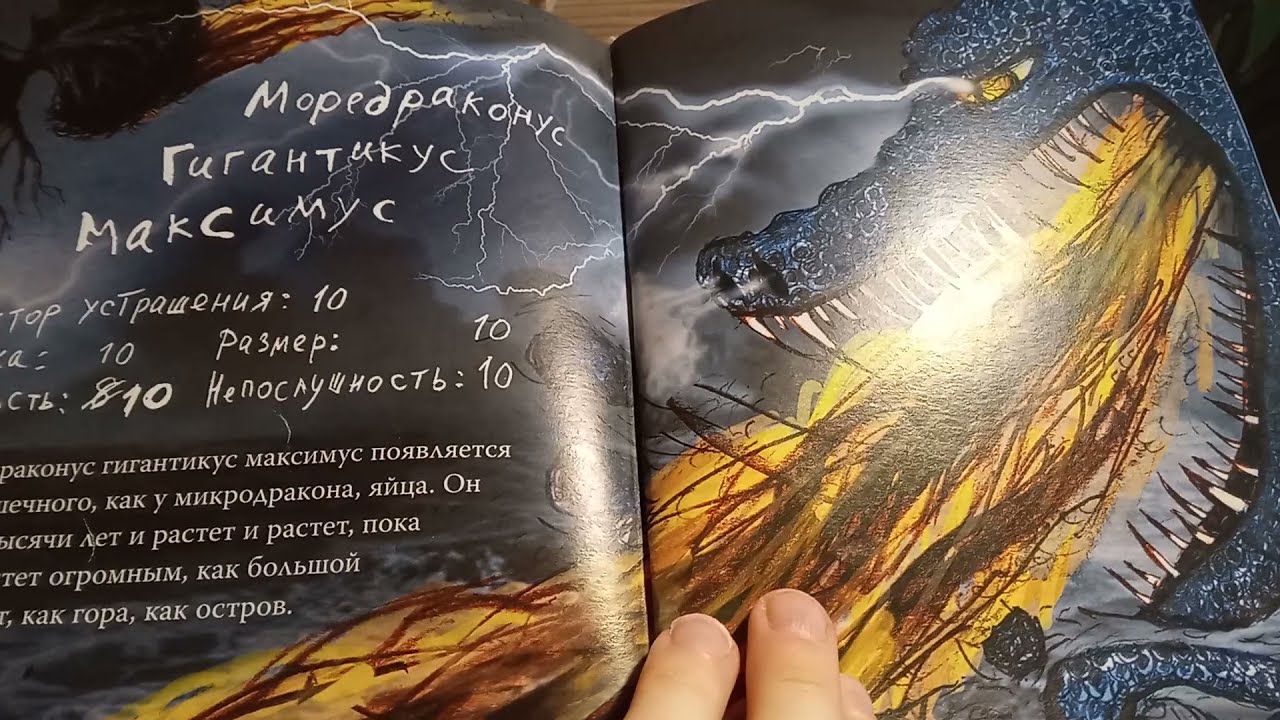 Мореdраконус
Гигантикус
максимус
устрашения: 10
10 Размер: 10
10 Непослушность: 10
гигантикус максимус появляется
как у микродракона, яйца. Он
лет и растет и растет, пока
огромным, как большой
как гора, как остров.